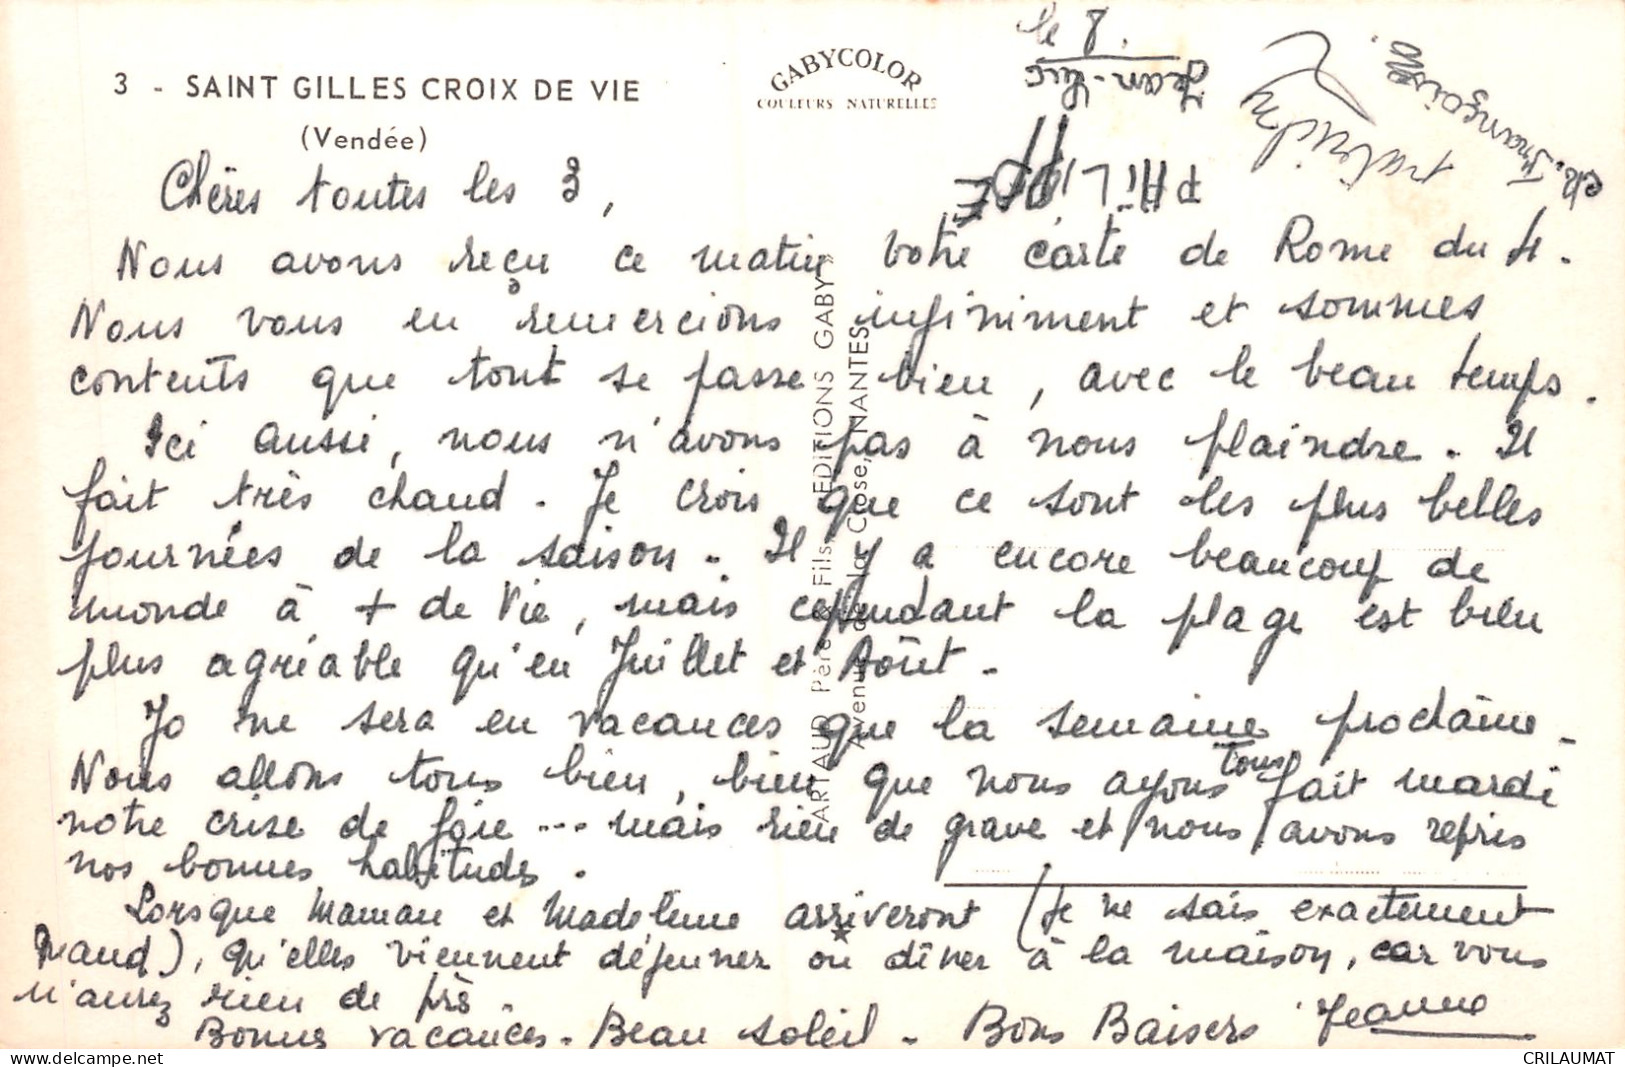 3 - SAINT GILLES CROIX DE VIE
(Vendée)
GABYCOLOR
COULEURS NATURELLES
le 8.
Jean-Luc
PHILIPPE
Ch. Françoise
Chères toutes les 3,
Nous avons reçu ce matin votre carte de Rome du 4.
Nous vous en remercions infiniment et sommes
contents que tout se passe bien, avec le beau temps.
Ici aussi, nous n'avons pas à nous plaindre. Il
fait très chaud. Je crois que ce sont les plus belles
journées de la saison. Il y a encore beaucoup de
monde à + de Vie, mais cependant la plage est bien
plus agréable qu'en Juillet et Août.
Jo ne sera en vacances que la semaine prochaine.
Nous allons tous bien, bien que nous ayons tous fait mardi
notre crise de foie ... mais rien de grave et nous avons repris
nos bonnes habitudes.
Lorsque Maman et Madeleine arriveront (je ne sais exactement
quand), qu'elles viennent déjeuner ou dîner à la maison, car vous
n'aurez rien de prêt.
Bonnes vacances. Beau soleil. Bons Baisers Jeanne
ARTAUD Père & Fils, EDITIONS GABY
Avenue de la Close, NANTES
CRILAUMAT